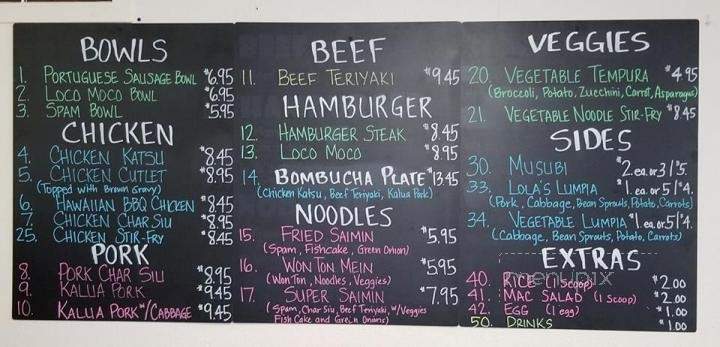 BOWLS
1. PORTUGUESE SAUSAGE BOWL $6.95
2. LOCO MOCO BOWL $6.95
3. SPAM BOWL $5.95
CHICKEN
4. CHICKEN KATSU $8.45
5. CHICKEN CUTLET $8.95
(Topped with Brown Gravy)
6. HAWAIIAN BBQ CHICKEN $8.45
7. CHICKEN CHAR SIU $8.95
25. CHICKEN STIR-FRY $8.45
PORK
8. PORK CHAR SIU $8.95
9. KALUA PORK $9.45
10. KALUA PORK W/CABBAGE $9.45
BEEF
11. BEEF TERIYAKI $9.45
HAMBURGER
12. HAMBURGER STEAK $8.45
13. LOCO MOCO $8.95
14. BOMBUCHA PLATE $13.45
(Chicken Katsu, Beef Teriyaki, Kalua Pork)
NOODLES
15. FRIED SAIMIN $5.95
(Spam, Fishcake, Green Onion)
16. WON TON MEIN $5.95
(Won Ton, Noodles, Veggies)
17. SUPER SAIMIN $7.95
(Spam, Char Siu, Beef Teriyaki, W/Veggies
Fish Cake and Green Onions)
VEGGIES
20. VEGETABLE TEMPURA $4.95
(Broccoli, Potato, Zucchini, Carrot, Asparagus)
21. VEGETABLE NOODLE STIR-FRY $8.45
SIDES
30. MUSUBI $2.ea. or 3/$5.
33. LOLA'S LUMPIA $1.ea. or 5/$4.
(Pork, Cabbage, Bean Sprouts, Potato, Carrots)
34. VEGETABLE LUMPIA $1.ea. or 5/$4.
(Cabbage, Bean Sprouts, Potato, Carrots)
EXTRAS
menupix
40. RICE (1 Scoop) $2.00
41. MAC SALAD (1 Scoop) $2.00
42. EGG (1 egg) $1.00
50. DRINKS $1.00